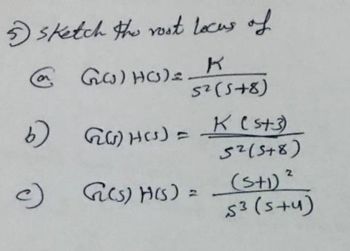 5) sketch the root locus of
(a) G(s) H(s) = K / s²(s+8)
b) G(s) H(s) = K(s+3) / s²(s+8)
c) G(s) H(s) = (s+1)² / s³(s+4)